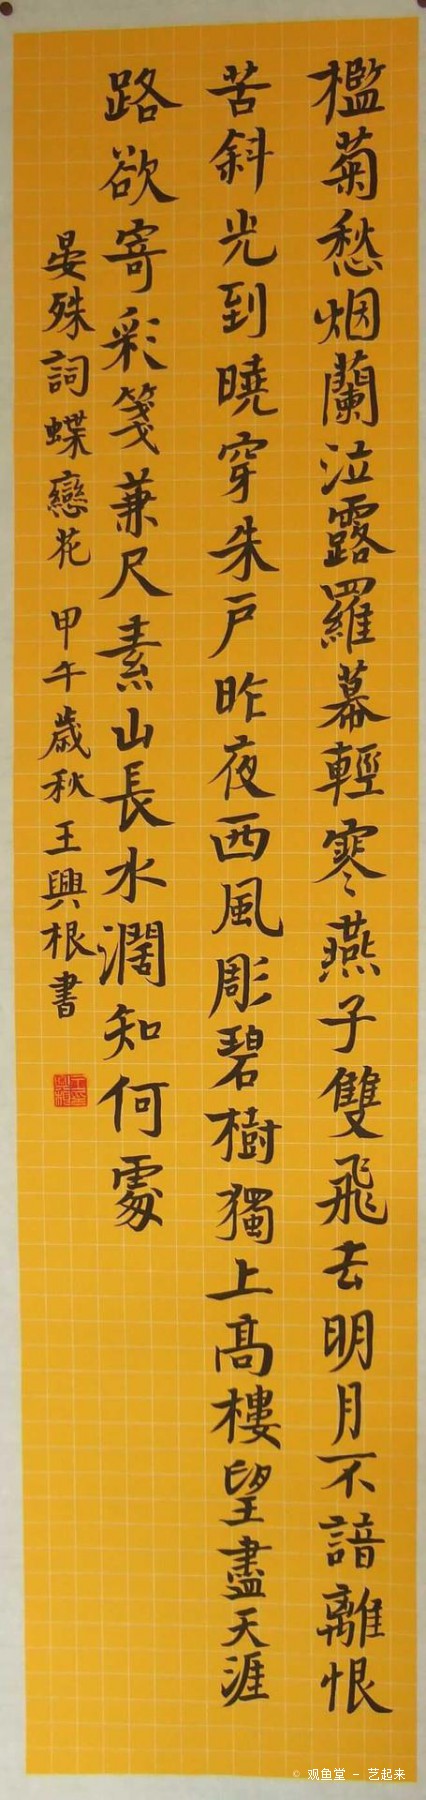 檻菊愁烟蘭泣露羅幕輕寒燕子雙飛去明月不諳離恨
苦斜光到曉穿朱戶昨夜西風彫碧樹獨上高樓望盡天涯
路欲寄彩箋兼尺素山長水濶知何處
晏殊詞蝶戀花 甲午歲秋王興根書
© 观鱼堂 – 艺起来